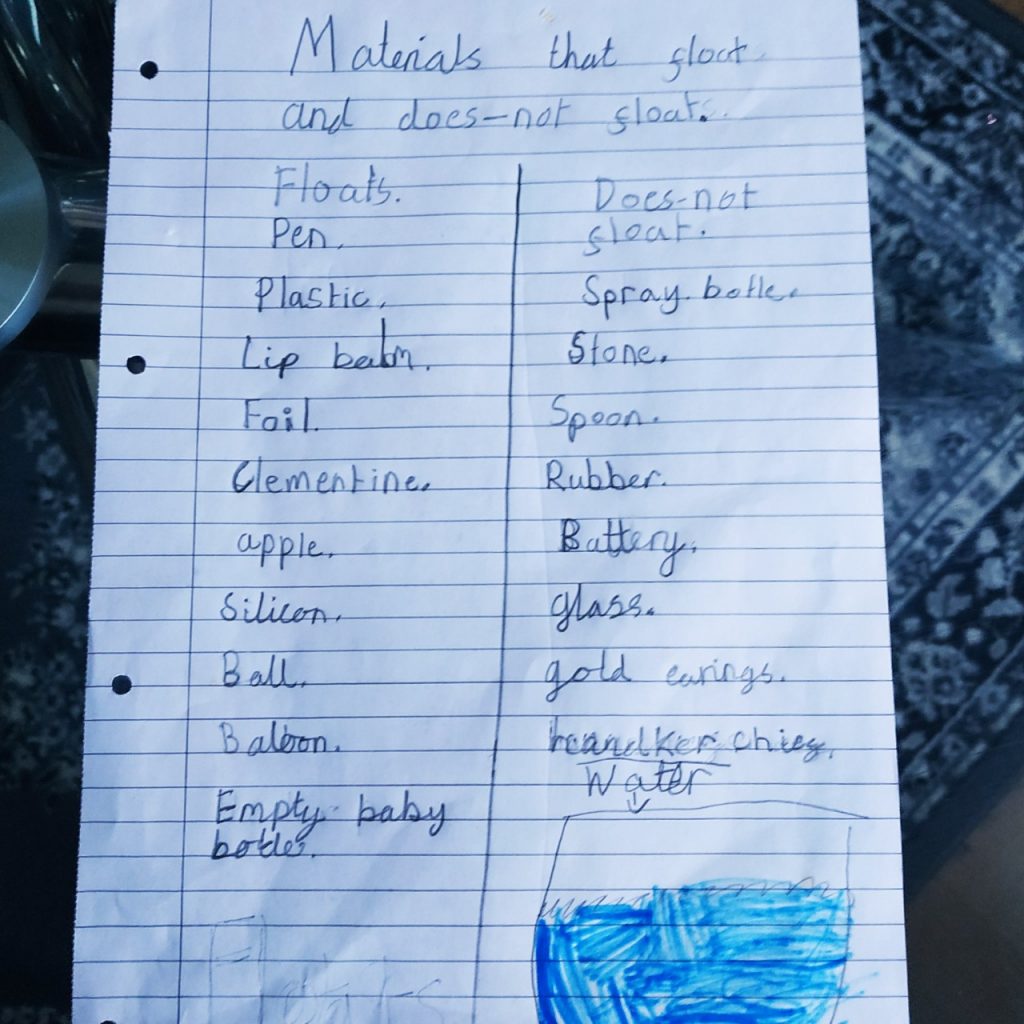 Materials that float
and does-not float.
Floats.
Pen.
Plastic.
Lip balm.
Foil.
Clementine.
apple.
Silicon.
Ball.
Baloon.
Empty baby
botle.
Does-not
float.
Spray botle.
Stone.
Spoon.
Rubber.
Battery.
glass.
gold earings.
handkerchief.
Water